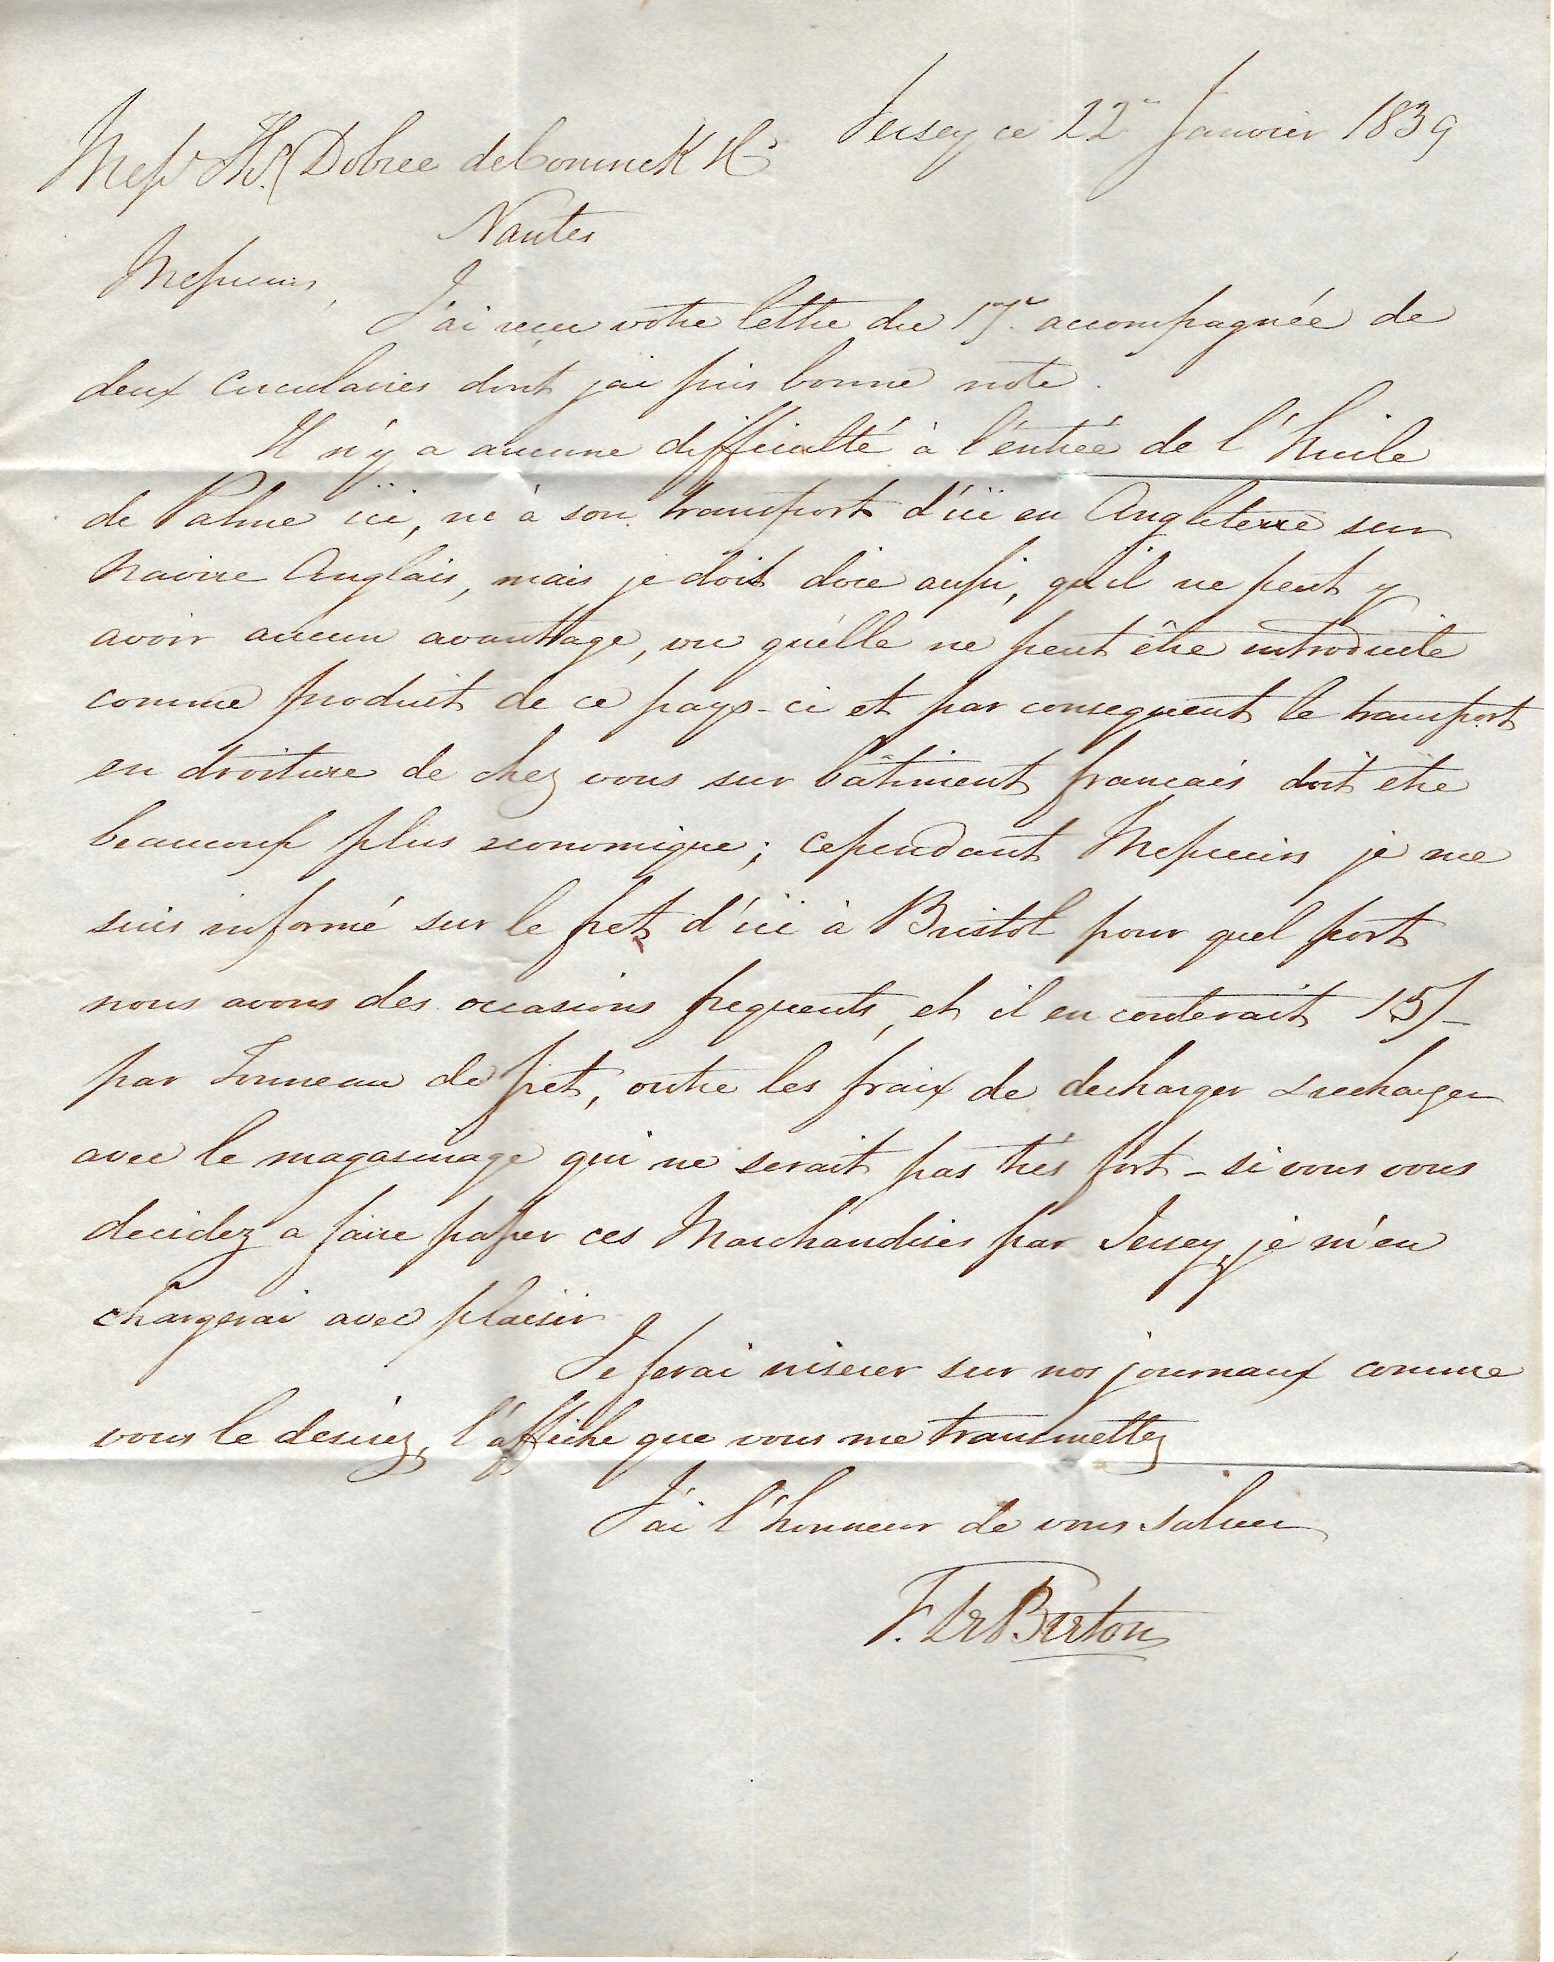 Jersey ce 22 Janvier 1839
Mess Th. Dobree de Coninck & Co
Nantes
Messieurs,
J'ai recu votre lettre du 17. accompagnée de
deux circulaires dont j'ai pris bonne note.
Il n'y a aucune difficulté à l'entrée de l'huile
de Palme ici, ni à son transport d'ici en Angleterre sur
navire Anglais, mais je doit dire aussi, qu'il ne peut y
avoir aucun avanttage, vu qu'elle ne peut être introduite
comme produit de ce pays-ci et par consequent le transport
en droiture de chez vous sur bâtiment francais doit etre
beaucoup plus economique; cependant Messieurs je me
suis informé sur le fret d'ici à Bristol pour quel port
nous avons des occasions frequents, et il en couterait 15/-
par Tonneau de fret, outre les fraix de decharger & recharger
avec le magasinage qui ne serait pas très fort - si vous vous
decidez a faire passer ces Marchandises par Jersey, je m'en
chargerai avec plaisir
Je ferai inserer sur nos journaux comme
vous le desirez, l'affiche que vous me transmettez
J'ai l'honneur de vous saluer
F. Le Breton